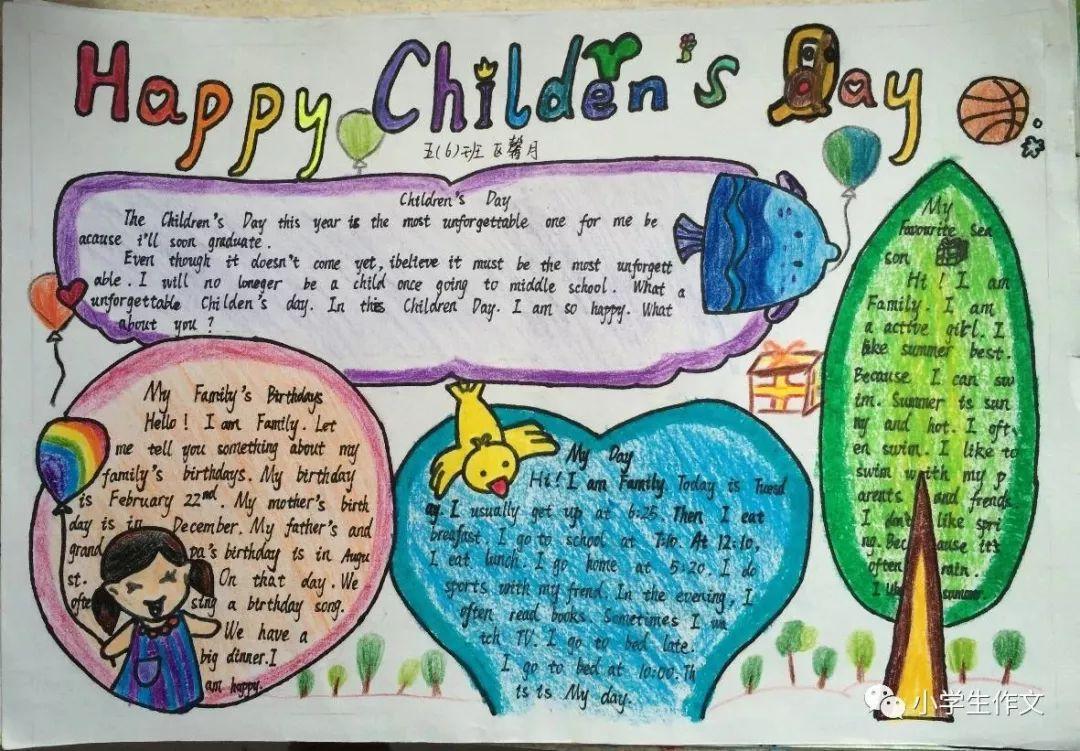 Happy Children's Day
五(6)班 区馨月
Children's Day
The Children's Day this year is the most unforgettable one for me be
acause i'll soon graduate.
Even though it doesn't come yet, ibelieve it must be the most unforgett
able. I will no loneger be a child once going to middle school. What a
unforgettable Childen's day. In this Children Day. I am so happy. What
about you?
My
Favourite Sea
son
Hi! I am
Family. I am
a active girl. I
like summer best.
Because I can sw
im. Summer is sun
ny and hot. I oft
en swim. I like to
swim with my p
arents and frends
I don't like spri
ng. Because it's
often rain.
I like summer.
My Family's Birthdays
Hello! I am Family. Let
me tell you something about my
family's birthdays. My birthday
is February 22nd. My mother's birth
day is in December. My father's and
grandpa's birthday is in Augu
st. On that day. We
ofte sing a birthday song.
We have a
big dinner. I
am happy.
My Day
Hi! I am Family. Today is Tuesd
ay. I usually get up at 6:25. Then I eat
breafast. I go to school at 7:10. At 12:10,
I eat lunch. I go home at 5:20. I do
sports with my frend. In the evening, I
often read books. Sometimes I wa
tch TV. I go to bed late.
I go to bed at 10:00. Th
is is My day.
小学生作文